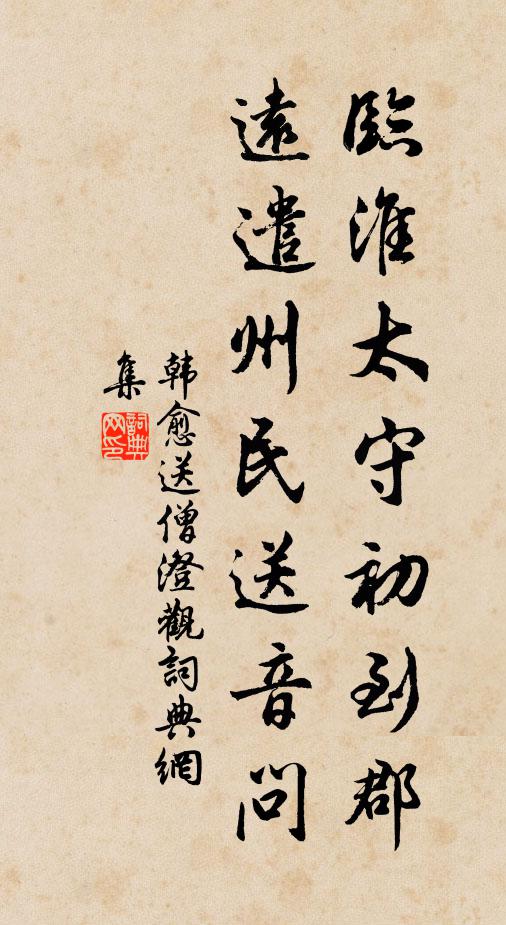 臨淮太守初到郡
遠遣州民送音問
韓愈送僧澄觀詞典網
集
詞典
网印